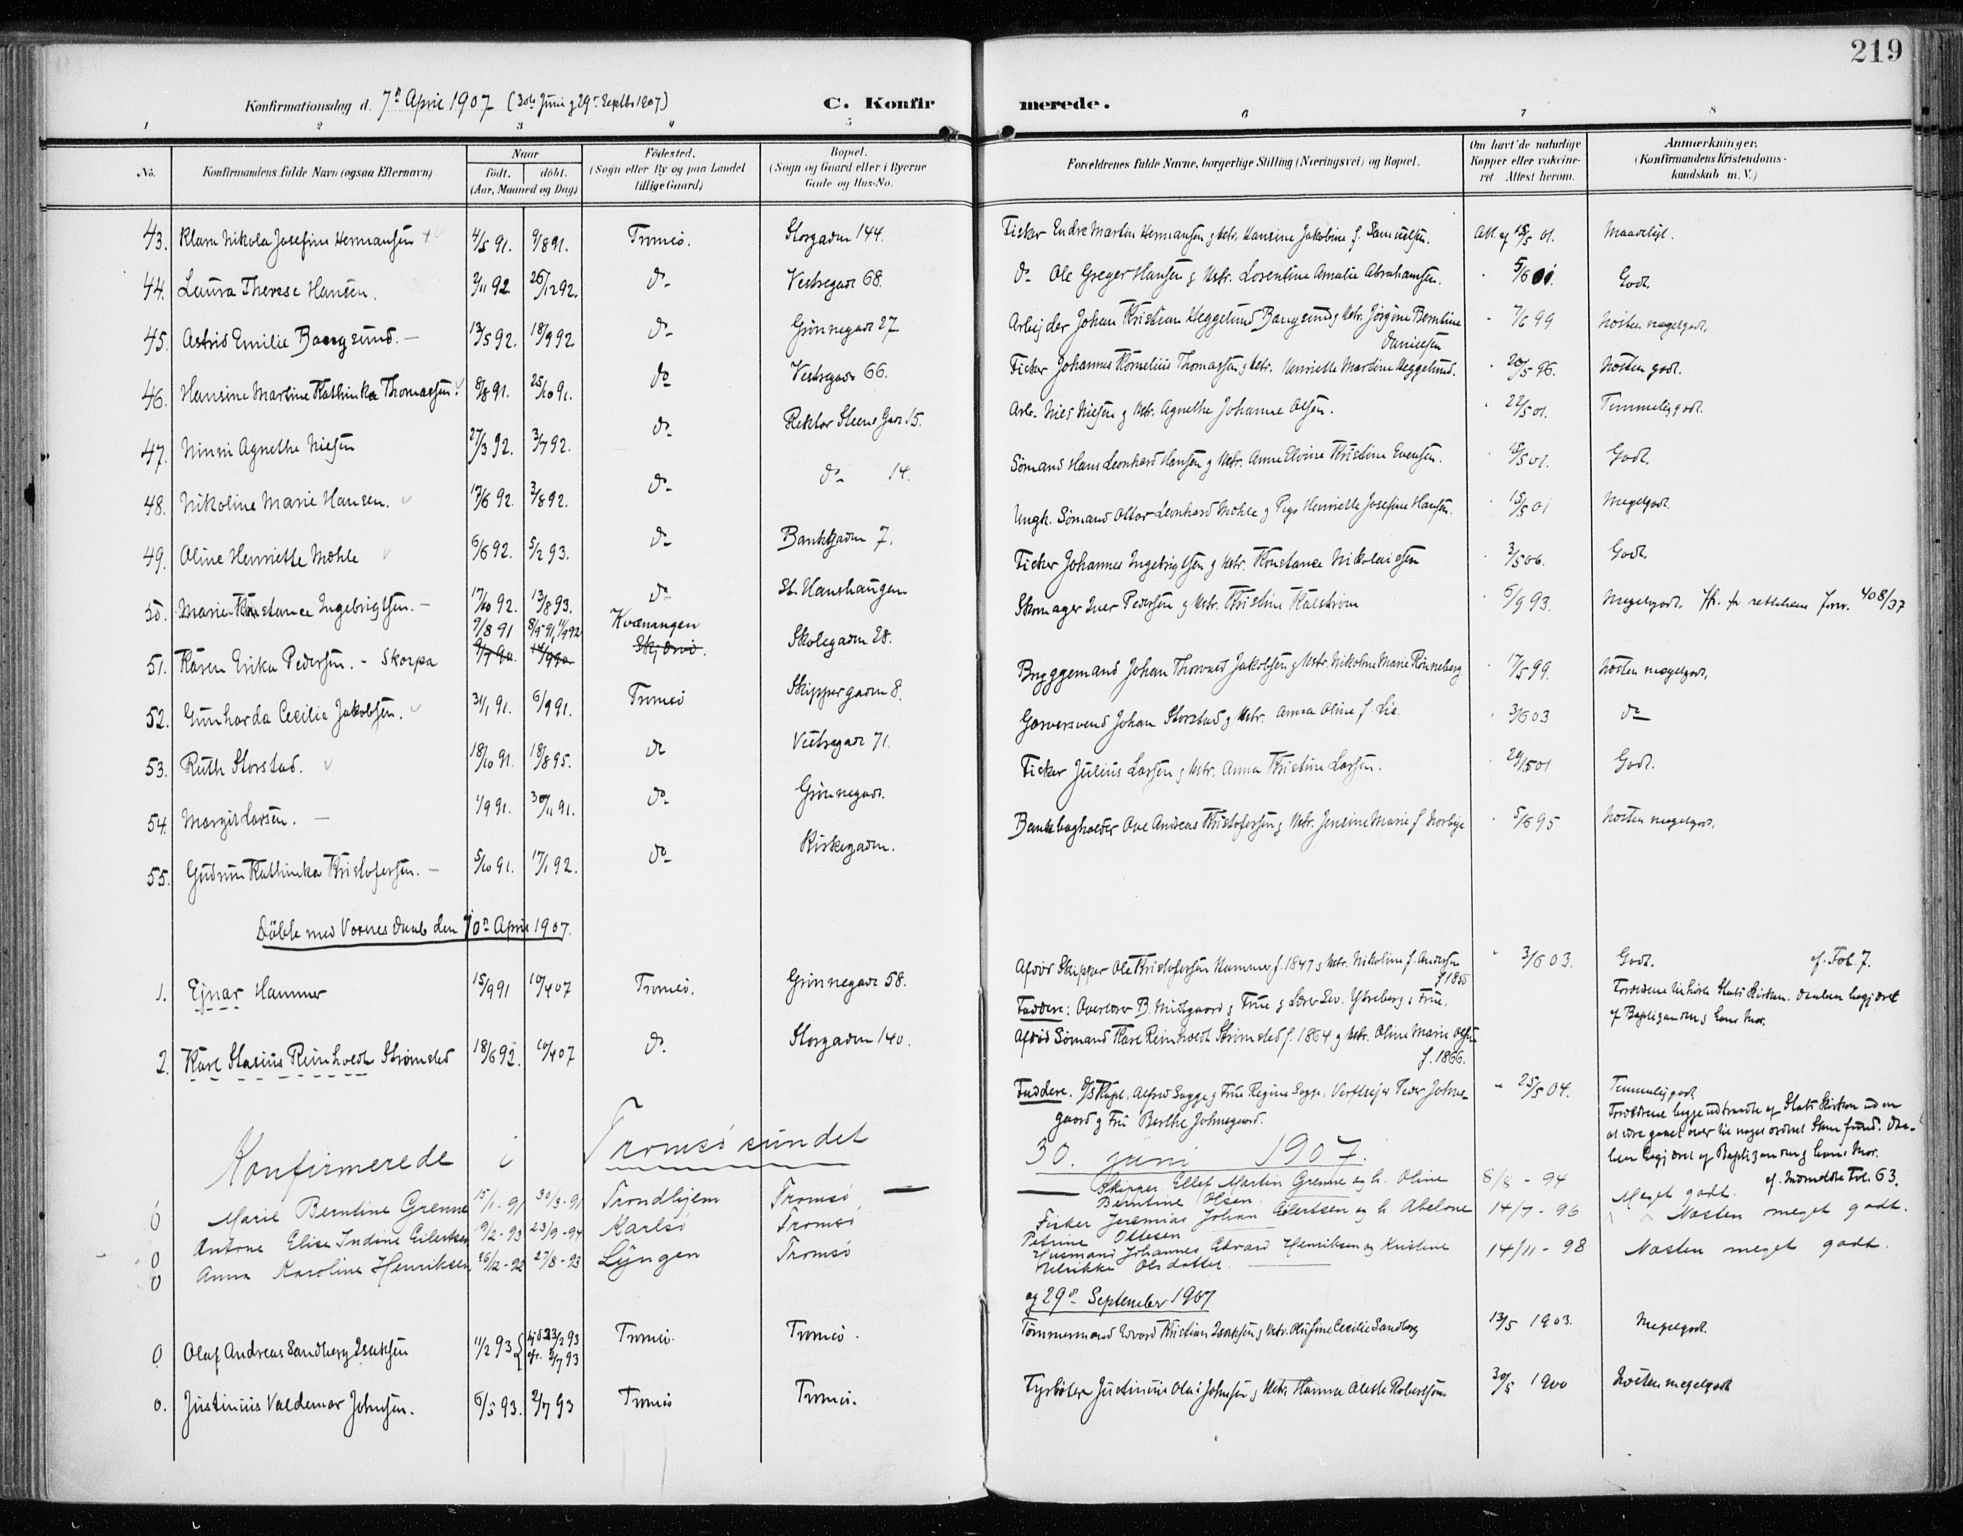 219
Konfirmationsdag d. 7de April 1907 (30te Juni og 29de Septbr 1907) C. Konfirmerede.
1 2 3 4 5 6 7 8
No. Konfirmandens fulde Navn (ogsaa Efternavn) Naar født. døbt. (Aar, Maaned og Dag) Fødested. (Sogn eller By og paa Landet tillige Gaard) Bopæl. (Sogn og Gaard eller i Byerne Gade og Hus-No. Forældrenes fulde Navne, borgerlige Stilling (Næringsvei) og Bopæl. Om havt de naturlige Kopper eller vaccineret. Attest herom. Anmærkninger. (Konfirmandens Kristendomskundskab m. V.)
43. Klara Nikola Josefine Hermansen 4/5 91. 9/8 91. Tromsö. Storgaden 144. Fisker Endre Martin Hermansen og Hstr. Hansine Jakobine f. Samuelsen. Att. af 18/5 01. Maadelig.
44. Laura Therese Hansen. 2/11 92 26/12 92. do Vestregade 68. do Ole Greger Hansen og Hstr. Lorentine Amalie Abrahamsen. 5/6 01. Godt.
45. Astrid Emilie Bangsund. 13/5 92. 18/9 92 do Grønnegade 27 Arbejder Johan Kristian Heggelund Bangsund og Hstr. Jørgine Berntine Danielsen 7/6 99 Næsten megetgodt.
46. Hansine Martine Kathinka Thomassen. 8/8 91. 25/10 91. do Vestregade 66. Fisker Johannes Kornelius Thomassen og Hstr. Henriette Martine Heggelund. 20/5 96. Næsten godt.
47. Ninni Agnethe Nilsen 27/3 92. 3/7 92. do Rektor Steens Gade 15. Arb. Nils Nilsen og Hstr. Agnethe Johanne Olsen. 22/5 01. Temmelig godt.
48. Nikoline Marie Hansen. 17/6 92. 3/8 92. do do 14. Sømand Hans Leonhard Hansen og Hstr. Anne Elvine Kristine Evensen. 18/5 01. Godt.
49. Oline Henriette Mohle 6/6 92. 5/2 93. do Bankgaden 7. Ungk. Sømand Ottar Leonhard Mohle og Pige Henriette Josefine Hansen. 15/5 01 Megetgodt.
50. Marie Konstance Ingebrigtsen. 17/10 92. 13/8 93. do St. Hanshaugen Fisker Johannes Ingebrigtsen og Hstr. Konstance Nikolaisen 3/5 06. Godt.
9/8 91 8/5 91, 11/9 92 Kvænangen
51. Karen Erika Pedersen. - Skorpa 9/7 90. 14/9 90 Skjervö. Skolegaden 28. Skomager Iver Pedersen og Hstr. Kristine Kalstrøm 6/9 93. Megetgodt. 408/37
52. Gunharda Cecilie Jakobsen. 31/1 91. 6/9 91. Tromsö Skippergaden 8. Bryggemand Johan Thorvald Jakobsen og Hstr. Nikoline Marie Rønneberg 17/5 99. Næsten megetgodt.
53. Ruth Storstad. 18/10 91. 18/8 95. do Vestregade 71. Garversvend Johan Storstad og Hstr. Anna Oline f. Lie. 3/6 03 do
54. Margit Larsen. 1/9 91. 30/11 91. do Grønnegade. Fisker Julius Larsen og Hstr. Anna Kristine Larsen. 29/5 01 Godt.
55. Gudrun Kathinka Kristofersen. 5/10 91. 17/1 92. do Kirkegaden. Bankbogholder Ove Andreas Kristofersen og Hstr. Jensine Marie f. Norbye 5/6 95 Næsten megetgodt.
Döbte med Voxnes Daab den 10de April 1907.
1. Ejnar Hammer 15/9 91 10/4 07 Tromsö. Grønnegade 58. Afdöd Skipper Ole Kristofersen Hammer f. 1847 og Hstr. Nikoline f. Andersen f. 1855 3/6 03. Godt. cf. Fol 7.
Faddere: Overlærer B. Midtgaard og Frue og Lærer Ytreberg og Frue. Forældrene tilhörte Stats Kirken. Daaben begjæret
af Baptisanden og hans Mor.
2. Karl Stasius Reinholdt Strömsted 18/6 92. 10/4 07 do. Storgaden 140. Afdöd Sömand Karl Reinholdt Strömsted f. 1864 og Hstr. Oline Marie Olsen f. 1866.
Faddere. Alfred Sagge og Frue Regine Sagge. Peder Johnsgaard og Fru Berthe Johnsgaard. 25/5 04. Temmelig godt.
Forældrene begge udtraadte af Stats Kirken uden
at være gaaet over til noget ordnet Samfund. Daaben
begjæret af Baptisanden og hans Mor.
cf. Fol. 63.
Konfirmerede i Tromsösundet 30. juni 1907.
0 Marie Berntine Grenne 15/1-91 30/3-91 Trondhjem Tromsö Skipper Ellef Martin Grenne og h. Oline Berntine Olsen. 8/8-94 Meget godt.
0 Antone Elise Indine Eilertsen 9/2-93 23/9-94 Karlsö Tromsö Fisker Jeremias Johan Eilertsen og h. Abelone Petrine Ottesen 14/7-96 Næsten meget godt.
0 Anna Karoline Henriksen 16/12-92 27/8-93 Lyngen Tromsö Husmand Johannes Edvard Henriksen og Kristine Ulrikke Olsdatter 14/11-98 Næsten meget godt.
og 29de September 1907
0. Olaf Andreas Sandberg Isaksen 11/2 93 23/2 93 2/7 93 Tromsö. Tromsö. Tømmermand Edvard Kristian Isaksen og Hstr. Olufine Cecilie Sandberg 13/5 1903. Megetgodt.
0. Justinius Valdemar Johnsen. 6/5 93. 2/7 93 Tromsö Tromsö. Fyrböter Justinius Olai Johnsen og Hstr. Hanna Aleste Robertsen 30/5 1900 Næsten megetgodt